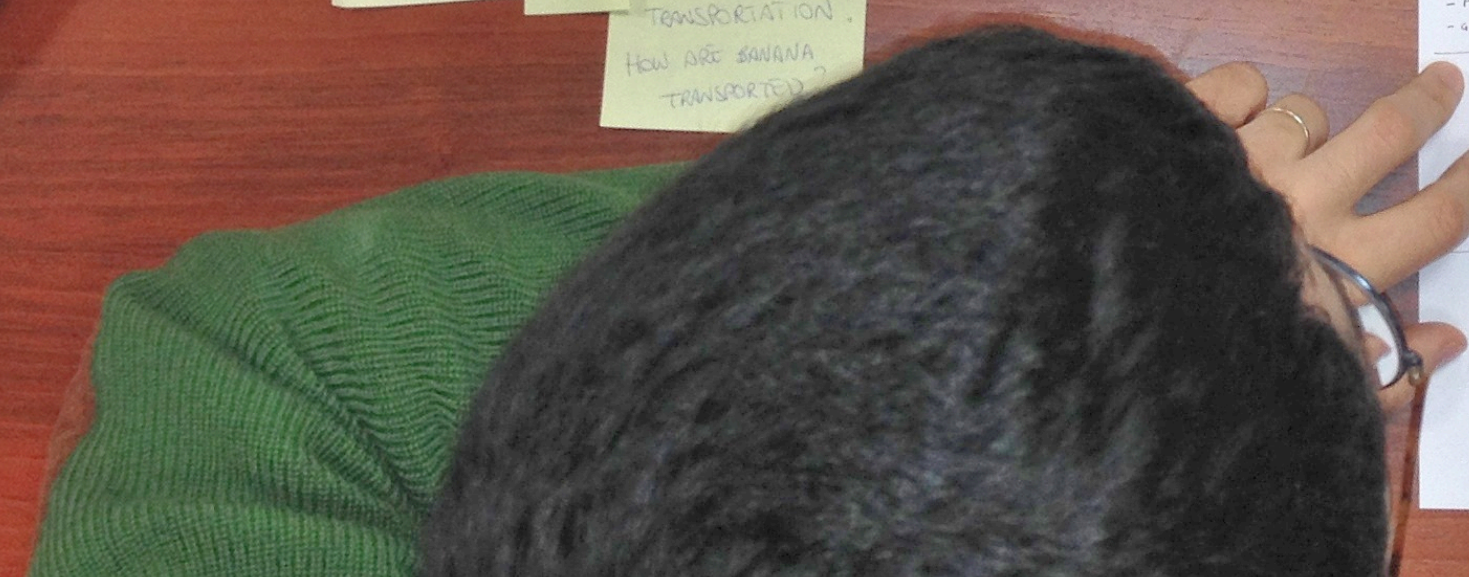 TRANSPORTATION.
HOW ARE BANANA
TRANSPORTED?